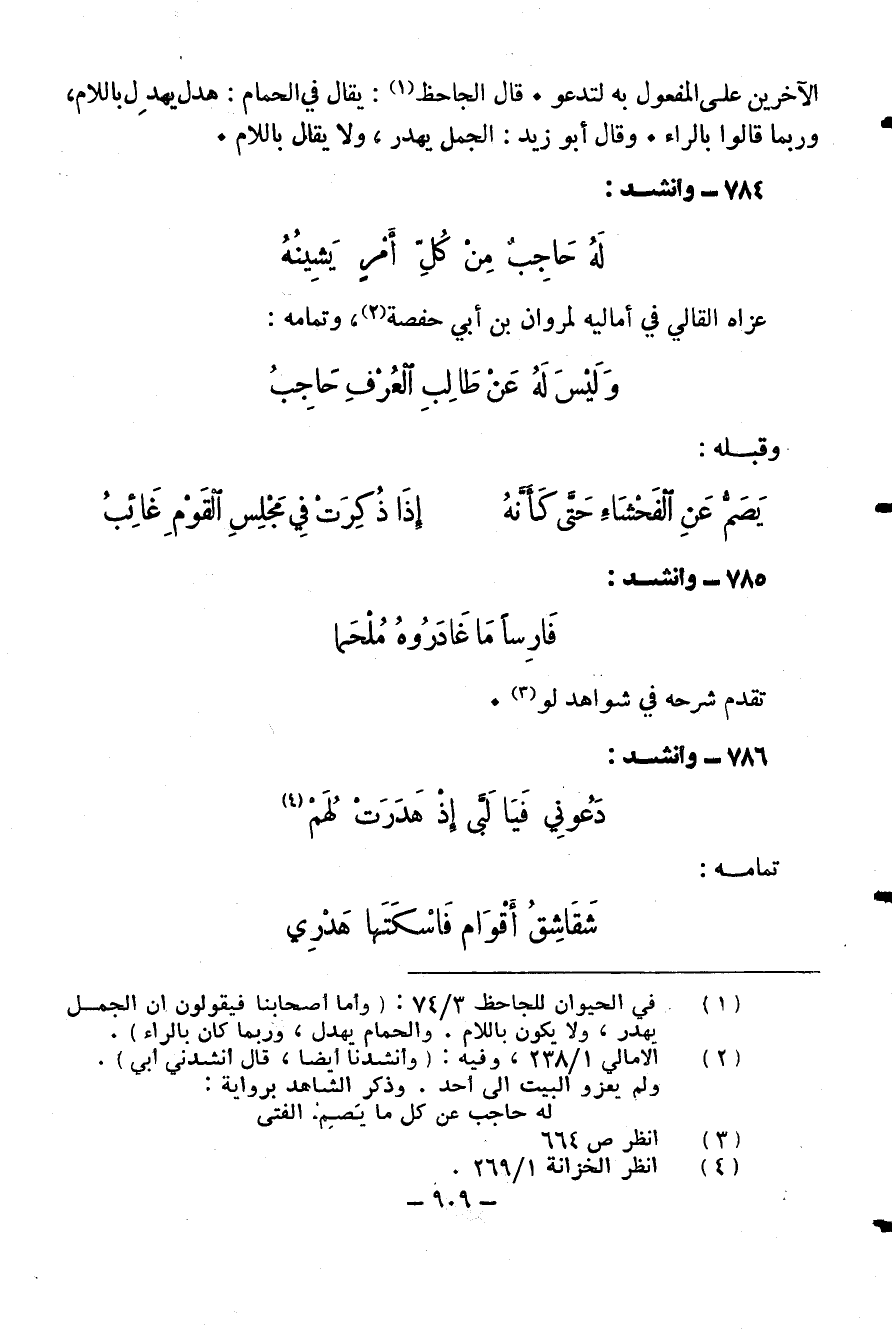 الآخرين على المفعول به لتدعو • قال الجاحظ(١) : يقال في الحمام : هدل يهدل باللام،
وربما قالوا بالراء • وقال أبو زيد : الجمل يهدر ، ولا يقال باللام •
٧٨٤ ــ وانشـــد :
لَهُ حَاجِبٌ مِنْ كُلِّ أَمْرٍ يَشِينُهُ
عزاه القالي في أماليه لمروان بن أبي حفصة(٢)، وتمامه :
وَلَيْسَ لَهُ عَنْ طَالِبِ ٱلْعُرْفِ حَاجِبُ
وقبـــله :
يَصَمُّ عَنِ ٱلْفَحْشَاءِ حَتَّى كَأَنَّهُ إِذَا ذُكِرَتْ فِي مَجْلِسِ ٱلْقَوْمِ غَائِبُ
٧٨٥ ــ وانشـــد :
فَارِساً مَا غَادَرُوهُ مُلْحَماً
تقدم شرحه في شواهد لو(٣) •
٧٨٦ ــ وانشـــد :
دَعُونِي فَيَا لَبَّى إِذْ هَدَرَتْ لَهُمْ(٤)
تمامـــه :
شَقَاشِقُ أَقْوَامٍ فَاسْكَتَها هَدْرِي
(١) في الحيوان للجاحظ ٧٤/٣ : ( وأما أصحابنا فيقولون ان الجمـــل
يهدر ، ولا يكون باللام . والحمام يهدل ، وربما كان بالراء ) .
(٢) الامالي ٢٣٨/١ ، وفيه : ( وأنشدنا أيضا ، قال أنشدني أبي ) .
ولم يعزو البيت الى أحد . وذكر الشاهد برواية :
له حاجب عن كل ما يَصِمُ الفتى
(٣) انظر ص ٦٦٤
(٤) انظر الخزانة ٢٦٩/١ .
ــ ٩٠٩ ــ